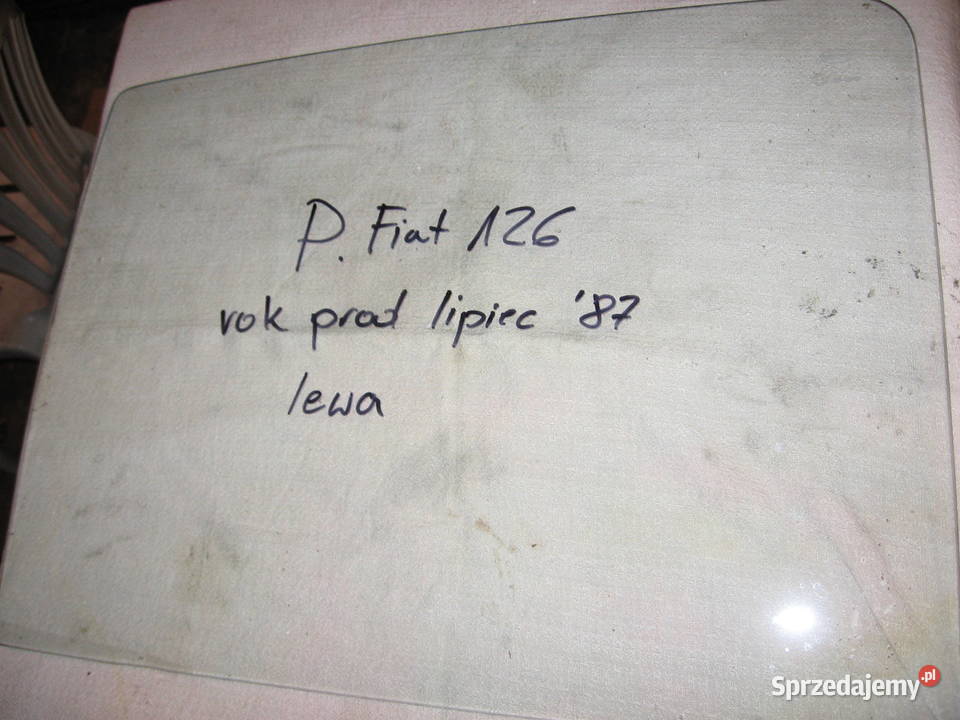 P. Fiat 126
rok prod lipiec '87
lewa
Sprzedajemy.pl